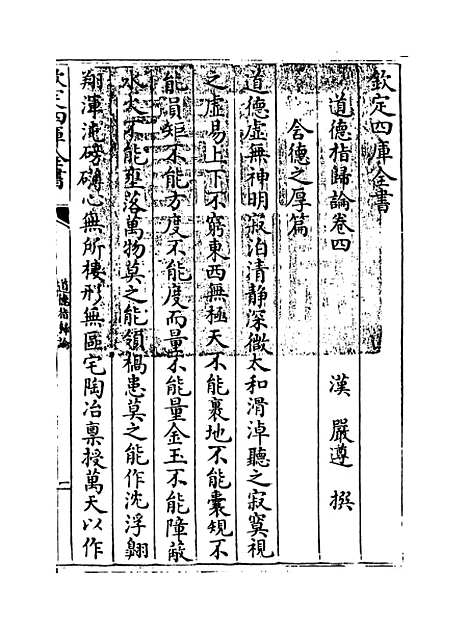 欽定四庫全書
道德指歸論卷四
漢 嚴遵 撰
含德之厚篇
道德虛無神明寂泊清静深微太和滑淖聽之寂寞視
之虛易上下不窮東西無極天不能裹地不能囊規不
能員矩不能方度不能度而量不能量金玉不能障蔽
水火不能墮落萬物莫之能領禍患莫之能作沈浮翺
翔渾沌磅礴心無所棲形無區宅陶冶禀授萬天以作
欽定四庫全書
道德指歸論